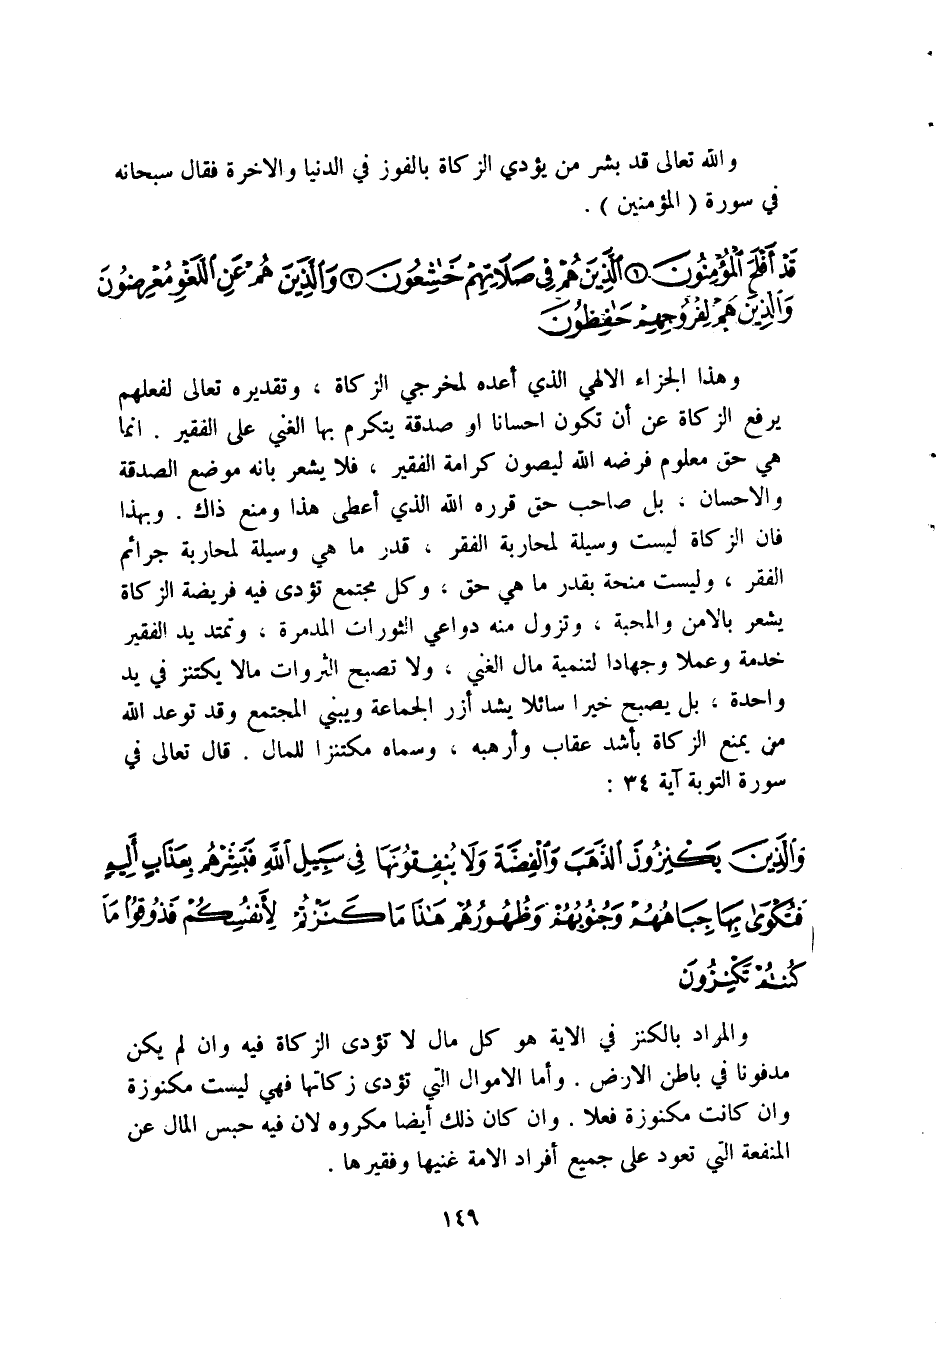 والله تعالى قد بشر من يؤدي الزكاة بالفوز في الدنيا والاخرة فقال سبحانه
في سورة ( المؤمنين ) .
قَدْ أَفْلَحَ الْمُؤْمِنُونَ ١ الَّذِينَ هُمْ فِي صَلَاتِهِمْ خَاشِعُونَ ٢ وَالَّذِينَ هُمْ عَنِ اللَّغْوِ مُعْرِضُونَ
وَالَّذِينَ هُمْ لِفُرُوجِهِمْ حَافِظُونَ
وهذا الجزاء الالهي الذي أعده لمخرجي الزكاة ، وتقديره تعالى لفعلهم
يرفع الزكاة عن أن تكون احسانا او صدقة يتكرم بها الغني على الفقير . انما
هي حق معلوم فرضه الله ليصون كرامة الفقير ، فلا يشعر بانه موضع الصدقة
والاحسان ، بل صاحب حق قرره الله الذي أعطى هذا ومنع ذاك . وبهذا
فان الزكاة ليست وسيلة لمحاربة الفقر ، قدر ما هي وسيلة لمحاربة جرائم
الفقر ، وليست منحة بقدر ما هي حق ، وكل مجتمع تؤدى فيه فريضة الزكاة
يشعر بالامن والمحبة ، وتزول منه دواعي الثورات المدمرة ، وتمتد يد الفقير
خدمة وعملا وجهادا لتنمية مال الغني ، ولا تصبح الثروات مالا يكتنز في يد
واحدة ، بل يصبح خيرا سائلا يشد أزر الجماعة ويبني المجتمع وقد توعد الله
من يمنع الزكاة بأشد عقاب وأرهبه ، وسماه مكتنزا للمال . قال تعالى في
سورة التوبة آية ٣٤ :
وَالَّذِينَ يَكْنِزُونَ الذَّهَبَ وَالْفِضَّةَ وَلَا يُنْفِقُونَهَا فِي سَبِيلِ اللَّهِ فَبَشِّرْهُم بِعَذَابٍ أَلِيمٍ
فَتُكْوَىٰ بِهَا جِبَاهُهُمْ وَجُنُوبُهُمْ وَظُهُورُهُمْ هَٰذَا مَا كَنَزْتُمْ لِأَنفُسِكُمْ فَذُوقُوا مَا
كُنتُمْ تَكْنِزُونَ
والمراد بالكنز في الاية هو كل مال لا تؤدى الزكاة فيه وان لم يكن
مدفونا في باطن الارض . وأما الاموال التي تؤدى زكاتها فهي ليست مكنوزة
وان كانت مكنوزة فعلا . وان كان ذلك أيضا مكروه لان فيه حبس المال عن
المنفعة التي تعود على جميع أفراد الامة غنيها وفقيرها .
١٤٩